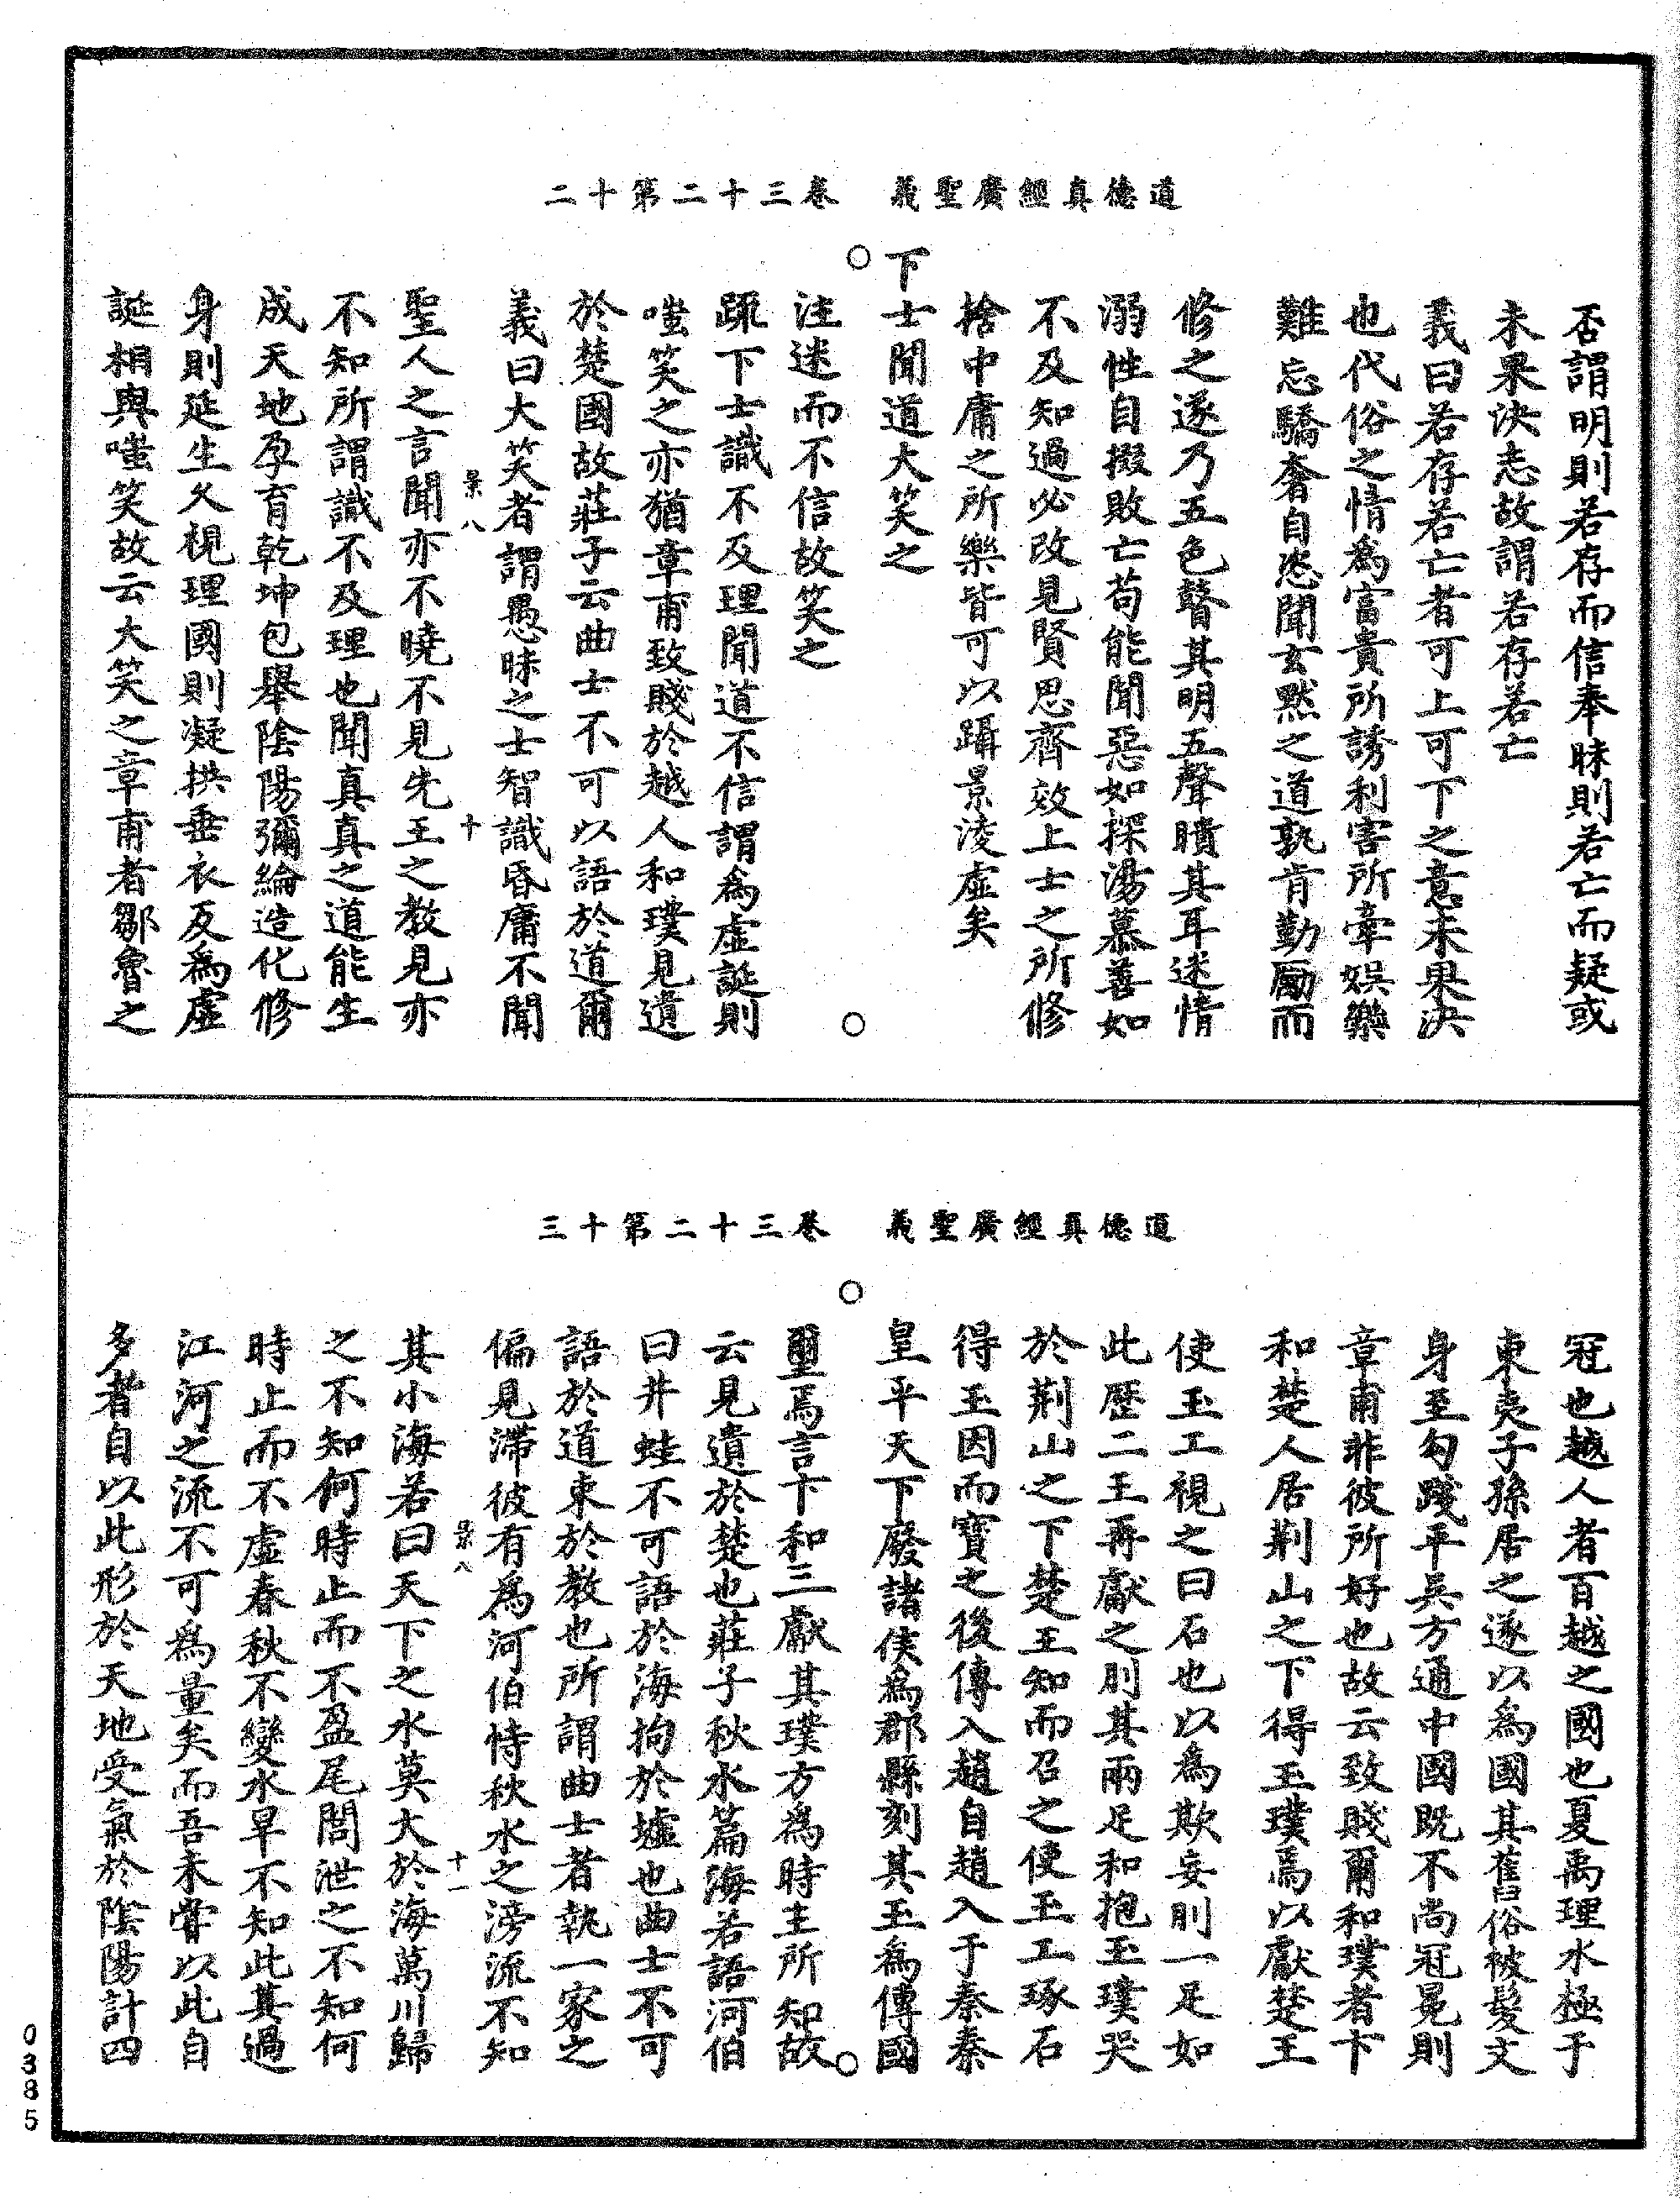 道德真經廣聖義　卷三十二第十二
否謂明則若存而信奉昧則若亡而疑或
未果決志故謂若存若亡
義曰若存若亡者可上可下之意未果決
也代俗之情為富貴所誘利害所牽娛樂
難忘驕奢自恣聞玄黙之道孰肯勤勵而
修之遂乃五色瞽其明五聲瞶其耳迷情
溺性自掇敗亡苟能聞惡如探湯慕善如
不及知過必改見賢思齊效上士之所修
捨中庸之所樂皆可以躡景淩虛矣
下士聞道大笑之
注迷而不信故笑之
疏下士識不及理聞道不信謂為虛誕則
嗤笑之亦猶章甫致賤於越人和璞見遺
於楚國故莊子云曲士不可以語於道爾
義曰大笑者謂愚昧之士智識昏庸不聞
景八　十
聖人之言聞亦不曉不見先王之教見亦
不知所謂識不及理也聞真真之道能生
成天地孕育乾坤包舉陰陽彌綸造化修
身則延生久視理國則凝拱垂衣反為虛
誕相與嗤笑故云大笑之章甫者鄒魯之
道德真經廣聖義　卷三十二第十三
冠也越人者百越之國也夏禹理水極于
東夷子孫居之遂以為國其舊俗被髮文
身至勾踐平吳方通中國既不尚冠冕則
章甫非彼所好也故云致賤爾和璞者卞
和楚人居荆山之下得玉璞焉以獻楚王
使玉工視之曰石也以為欺妄刖一足如
此歷二王再獻之刖其兩足和抱玉璞哭
於荆山之下楚王知而召之使玉工琢石
得玉因而寶之後傳入趙自趙入于秦秦
皇平天下廢諸侯為郡縣刻其玉為傳國
璽焉言卞和三獻其璞方為時主所知故
云見遺於楚也莊子秋水篇海若語河伯
曰井蛙不可語於海拘於墟也曲士不可
語於道束於教也所謂曲士者執一家之
偏見滯彼有為河伯恃秋水之滂流不知
景八　十一
其小海若曰天下之水莫大於海萬川歸
之不知何時止而不盈尾閭泄之不知何
時止而不虛春秋不變水旱不知此其過
江河之流不可為量矣而吾未嘗以此自
多者自以此形於天地受氣於陰陽計四
0385